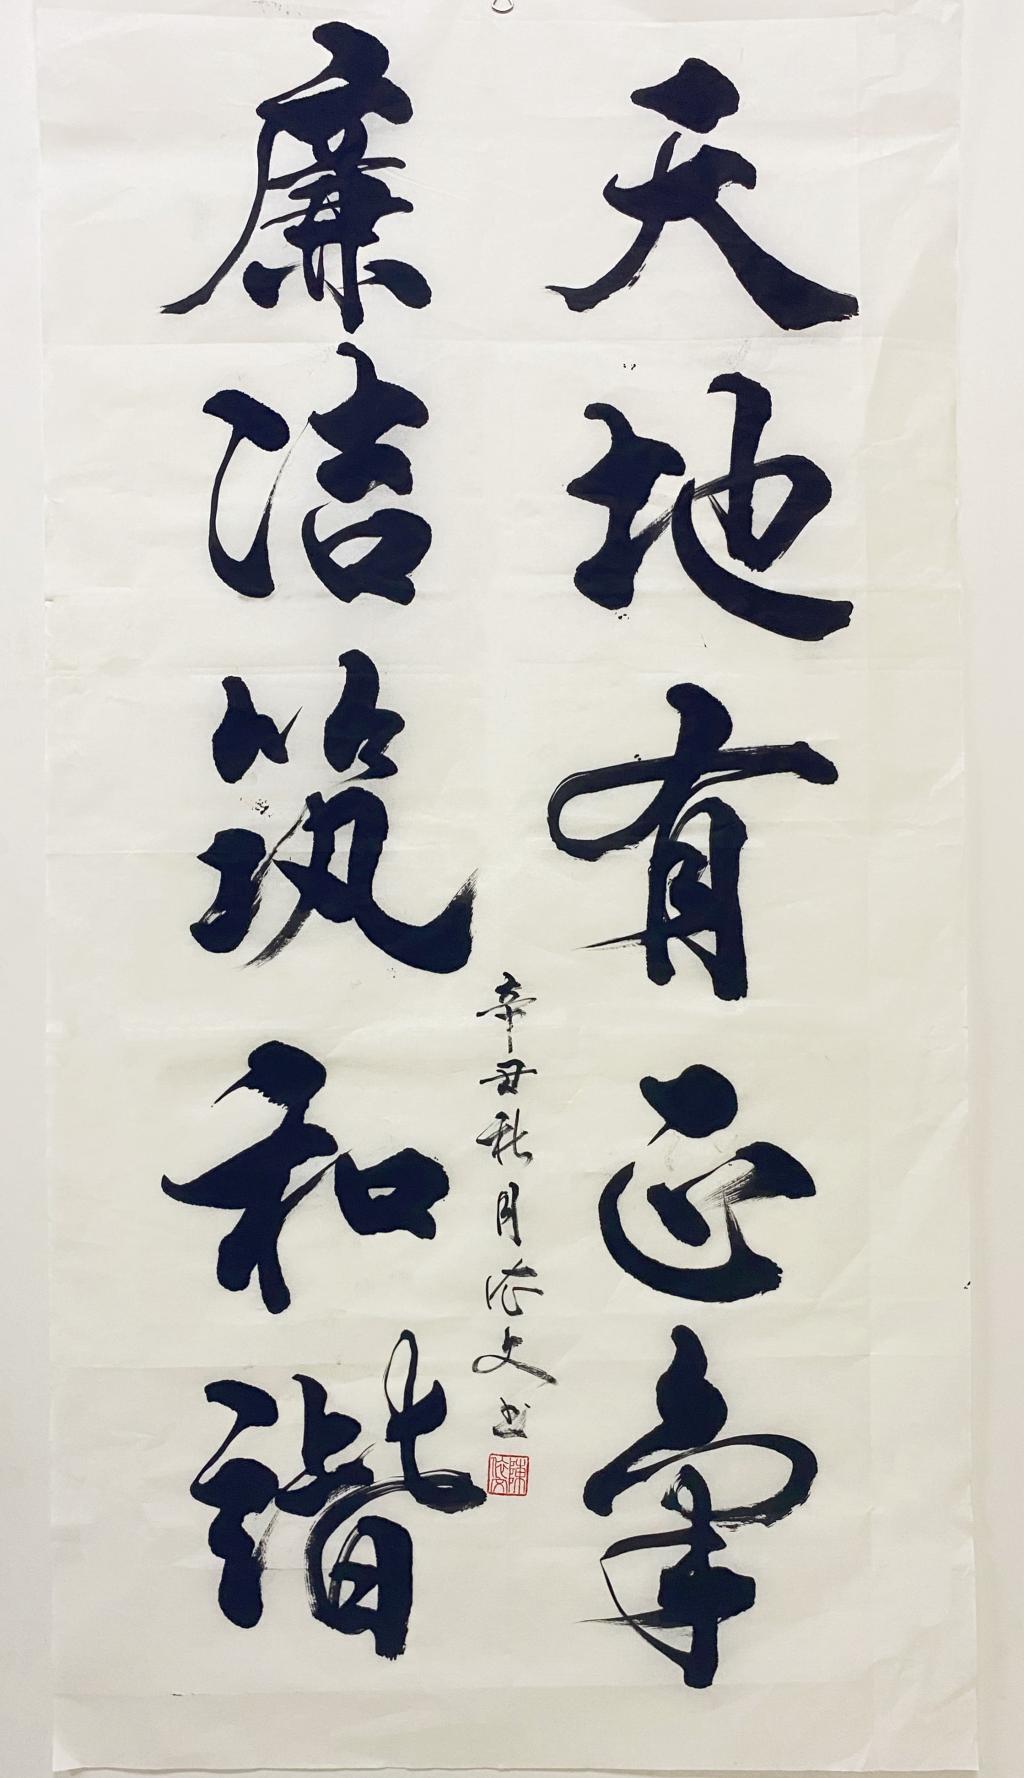 天地有正氣
廉洁筑和谐
辛丑秋月
文书
陳